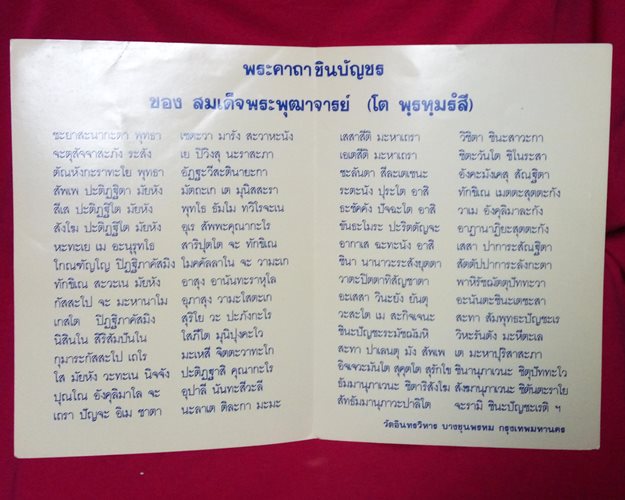 พระคาถาชินบัญชร
ของ สมเด็จพระพุฒาจารย์ (โต พฺรหฺมรํสี)
ชะยาสะนากะตา พุทธา เชตะวา มารัง สะวาหะนัง
จะตุสัจจาสะภัง ระสัง เย ปิวิงสุ นะราสะภา
ตัณหังกะราทะโย พุทธา อัฏฐะวีสะตินายะกา
สัพเพ ปะติฏฐิตา มัยหัง มัตถะเก เต มุนิสสะรา
สีเส ปะติฏฐิโต มัยหัง พุทโธ ธัมโม ทวิโรจะเน
สังโฆ ปะติฏฐิโต มัยหัง อุเร สัพพะคุณากะโร
หะทะเย เม อะนุรุทโธ สารีปุตโต จะ ทักขิเณ
โกณฑัญโญ ปิฏฐิภาคัสมิง โมคคัลลาโน จะ วามะเก
ทักขิเณ สะวะเน มัยหัง อาสุง อานันทะราหุโล
กัสสะโป จะ มะหานาโม อุภาสุง วามะโสตะเก
เกสโต ปิฏฐิภาคัสมิง สุริโย วะ ปะภังกะโร
นิสินโน สิริสัมปันโน โสภีโต มุนิปุงคะโว
กุมาระกัสสะโป เถโร มะเหสี จิตตะวาทะโก
โส มัยหัง วะทะเน นิจจัง ปะติฏฐาสิ คุณากะโร
ปุณโณ อังคุลิมาโล จะ อุปาลี นันทะสีวะลี
เถรา ปัญจะ อิเม ชาตา นะลาเต ติละกา มะมะ
เสสาสีติ มะหาเถรา วิชิตา ชินะสาวะกา
เอเตสีติ มะหาเถรา ชิตะวันโต ชิโนระสา
ชะลันตา สีละเตเชนะ อังคะมังคสุ สัณฐิตา
ระตะนัง ปุระโต อาสิ ทักขิเณ เมตตะสุตตะกัง
ธะชัคคัง ปัจฉะโต อาสิ วาเม อังคุลิมาละกัง
ขันธะโมระ ปะริตตัญจะ อาฏานาฏิยะสุตตะกัง
อากาเส ฉะทะนัง อาสิ เสสา ปาการะสัณฐิตา
ชินา นานาวะระสังยุตตา สัตตัปปาการะลังกะตา
วาตะปิตตาทิสัญชาตา พาหิรัชฌัตตุปัททะวา
อะเสสา วินะยัง ยันตุ อะนันตะชินะเตชะสา
วะสะโต เม สะกิจเจนะ สะทา สัมพุทธะปัญชะเร
ชินะปัญชะระมัชฌัมหิ วิหะรันตัง มะหีตะเล
สะทา ปาเลนตุ มัง สัพเพ เต มะหาปุริสาสะภา
อิจเจวะมันโต สุคุตโต สุรักโข ชินานุภาเวนะ ชิตุปัททะโว
ธัมมานุภาเวนะ ชิตาริสังโฆ สังฆานุภาเวนะ ชิตันตะราโย
สัทธัมมานุภาวะปาลิโต จะรามิ ชินะปัญชะเรติ ฯ
วัดอินทรวิหาร บางขุนพรหม กรุงเทพมหานคร